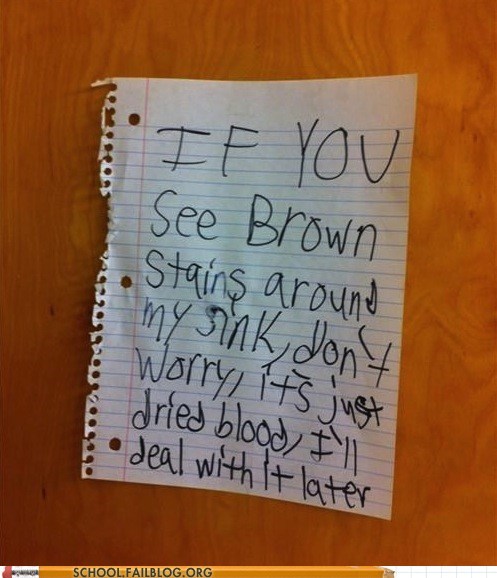 IF YOU
See Brown
Stains around
my sink, don't
worry, it's just
dried blood, I'll
deal with it later
SCHOOL.FAILBLOG.ORG